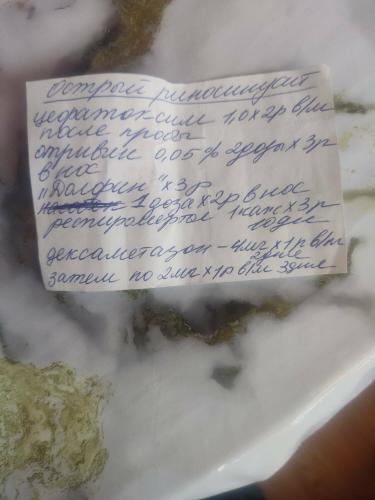 Острый риносинусит
цефатоксим 1,0 х 2р в/м
после пробы
отривин 0,05% 2дозы х 3р
в нос
"Долфин" х 3р
1 доза х 2р в нос
1 кап х 3р
дексаметазон - 4мг х 1р в/м
2дня
затем по 2мг х 1р в/м 3дня